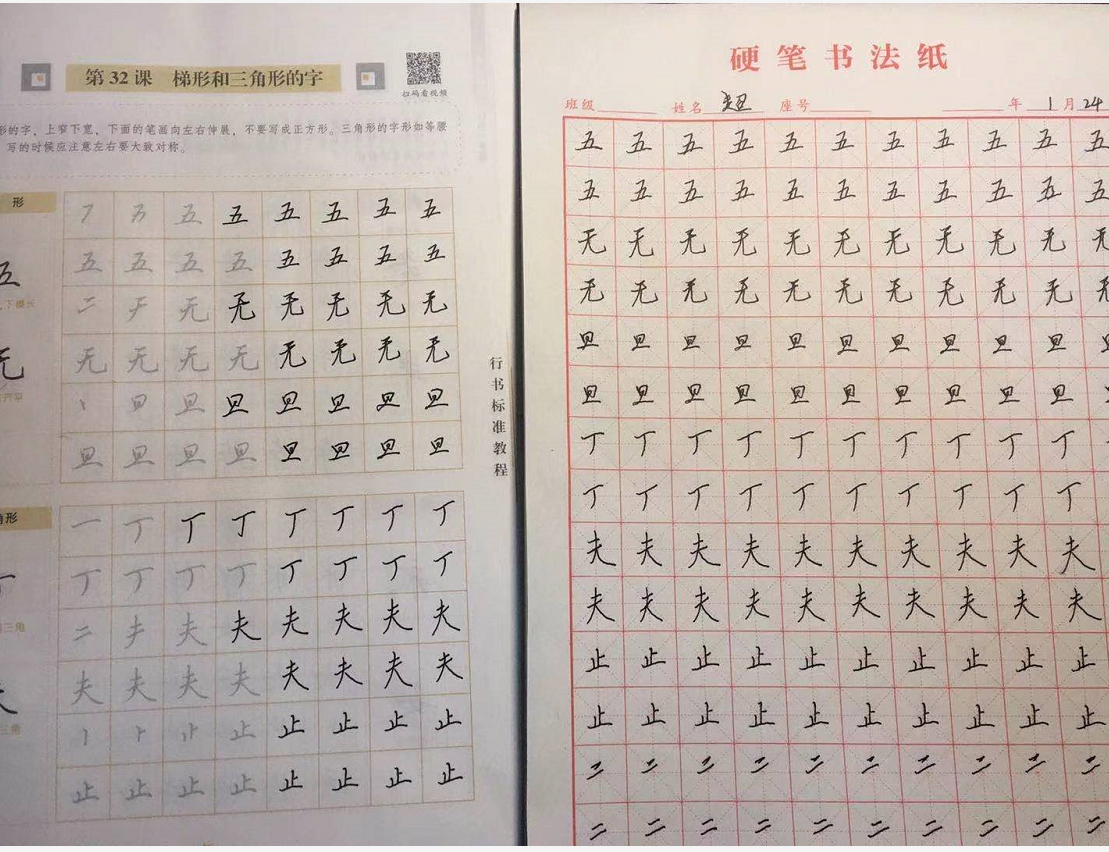 第32课 梯形和三角形的字
扫码看视频
形的字,上窄下宽,下面的笔画向左右伸展,不要写成正方形。三角形的字形如等腰
写的时候应注意左右要大致对称。
形
五
下横长
无
五 五 五 五 五 五
五 五 五 五 五 五 五 五
二 无 无 无 无 无 无
无 无 无 无 无 无 无 无
日 旦 旦 旦 旦 旦 旦
旦 旦 旦 旦 旦 旦 旦 旦
角形
三角
一 丁 丁 丁 丁 丁 丁 丁
丁 丁 丁 丁 丁 丁 丁 丁
二 夫 夫 夫 夫 夫 夫
夫 夫 夫 夫 夫 夫 夫 夫
止 止 止 止 止
止 止 止 止 止 止 止 止
行书标准教程
硬笔书法纸
班级 姓名 座号 年 1月24
五 五 五 五 五 五 五 五 五 五 五
五 五 五 五 五 五 五 五 五 五 五
无 无 无 无 无 无 无 无 无 无
无 无 无 无 无 无 无 无 无 无
旦 旦 旦 旦 旦 旦 旦 旦 旦 旦
旦 旦 旦 旦 旦 旦 旦 旦 旦 旦
丁 丁 丁 丁 丁 丁 丁 丁 丁 丁
丁 丁 丁 丁 丁 丁 丁 丁 丁 丁
夫 夫 夫 夫 夫 夫 夫 夫 夫 夫
夫 夫 夫 夫 夫 夫 夫 夫 夫 夫
止 止 止 止 止 止 止 止 止 止
止 止 止 止 止 止 止 止 止 止
二 二 二 二 二 二 二 二 二 二
二 二 二 二 二 二 二 二 二 二